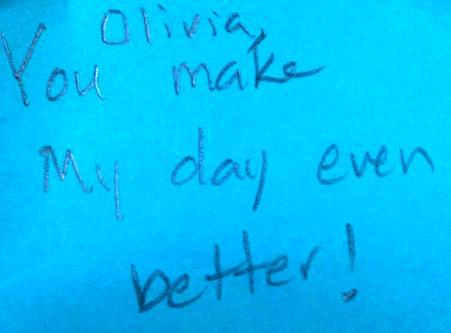 Olivia,
You make
My day even
better!